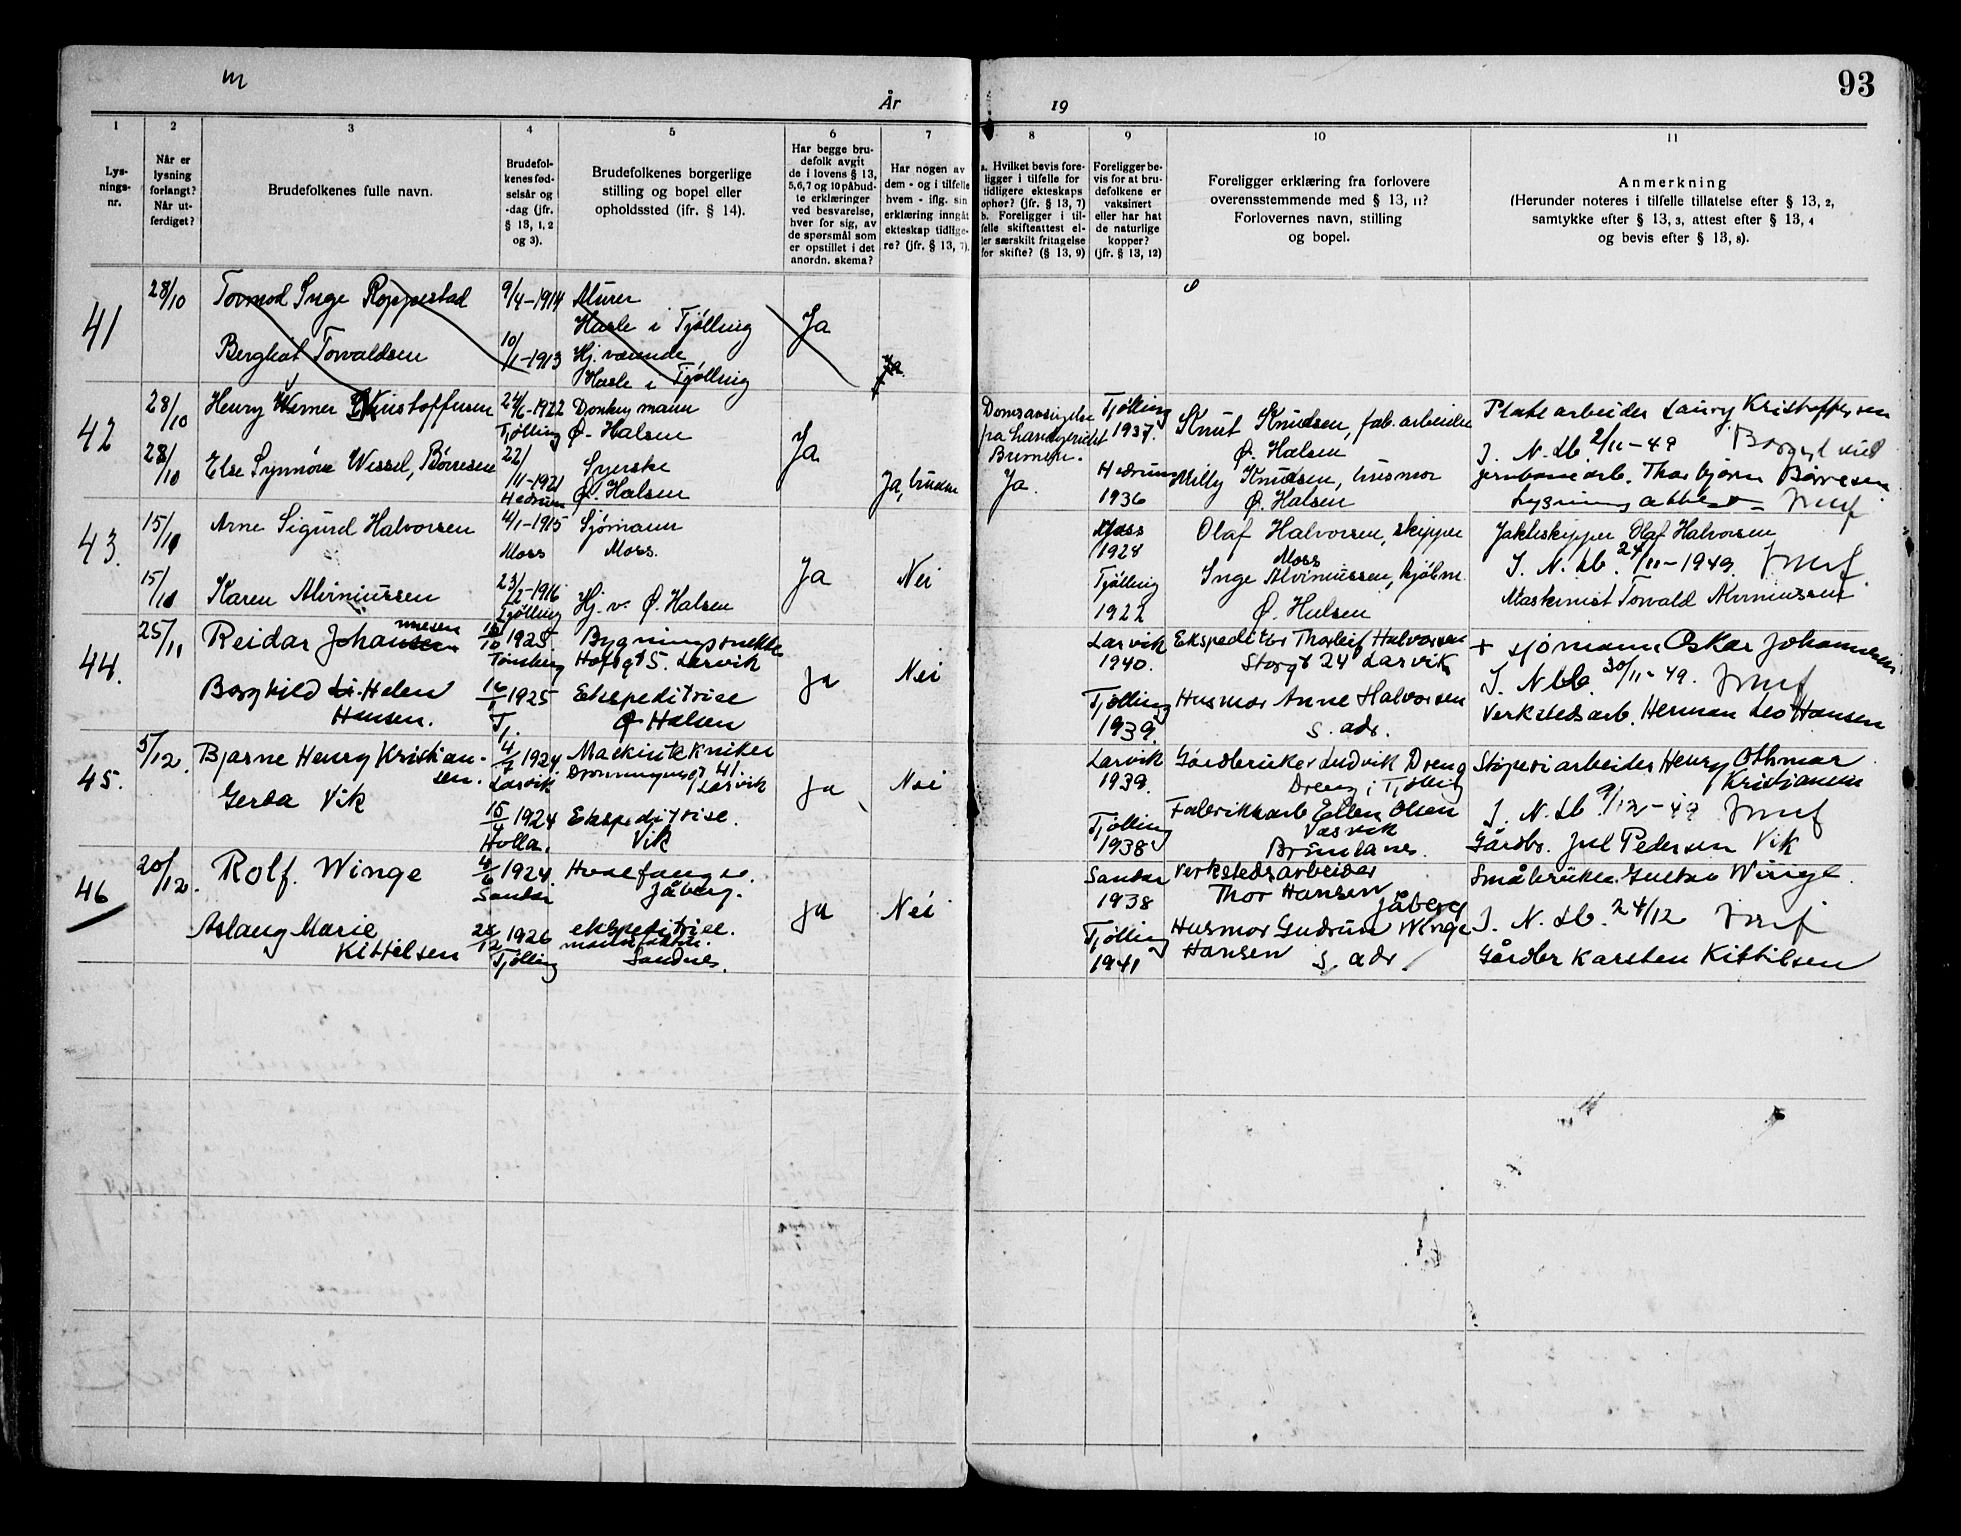 93
År
19
1 2 3 4 5 6 7 8 9 10 11
Lys-
nings-
nr.
Når er
lysning
forlangt?
Når ut-
ferdiget?
Brudefolkenes fulle navn.
Brudefol-
kenes fød-
selsår og
-dag (jfr.
§ 13, 1, 2
og 3).
Brudefolkenes borgerlige
stilling og bopel eller
opholdssted (ifr. § 14).
Har begge bru-
defolk avgit
de i lovens § 13,
5,6,7 og 10 påbud-
te erklæringer
ved besvarelse,
hver for sig, av
de spørsmål som
er opstillet i det
anordn. skema?
Har nogen av
dem - og i tilfelle
hvem - iflg. sin
erklæring inngåt
ekteskap tidlige-
re? (jfr. § 13, 7).
a. Hvilket bevis fore-
ligger i tilfelle for
tidligere ekteskaps
ophør? (jfr. § 13, 7)
b. Foreligger i til-
felle skifteattest el-
ler særskilt fritagelse
for skifte? (§ 13, 9)
Foreligger be-
vis for at bru-
defolkene er
vaksinert
eller har hat
de naturlige
kopper?
(jfr. § 13, 12)
Foreligger erklæring fra forlovere
overensstemmende med § 13, 11?
Forlovernes navn, stilling
og bopel.
Anmerkning
(Herunder noteres i tilfelle tillatelse efter § 13, 2,
samtykke efter § 13, 3, attest efter § 13, 4
og bevis efter § 13, 8).
41
28/10
Tormod Inge Roppestad
9/4-1914
Murer
Hasle i Tjølling
Ja
Berghat Torvaldsen
10/1-1913
Hj. værende
Hasle i Tjølling
Ja.
42
28/10
Henry Werner Kristoffersen
24/6-1922
Tjølling
Donkeymann
Ø. Halsen
Ja
Domsavsigelse
fra Landgericht
Bremen.
Tjølling
1937.
Knut Knudsen, fab. arbeider
Ø. Halsen
Platearbeider Laury Kristoffersen
I. N. Lb. 2/11-49
Borgel. viet
28/10
Else Synnøve Wessel, Børresen
22/11-1921
Hedrum
Syerske
Ø. Halsen
Ja, bruden
Ja.
Hedrum
1936
Milly Knudsen, husmor
Ø. Halsen
jernbanearb. Thorbjørn Børresen
Lysningsattest
43.
15/11
Arne Sigurd Halvorsen
4/1-1915
Moss
Sjømann
Moss.
Ja
Nei
Moss
1928
Olaf Halvorsen, skipper
Moss
Jakteskipper Olaf Halvorsen
I. N. Lb. 24/11-1949.
15/11
Karen Alvimiussen
23/2-1916
Tjølling
Hj. v. Ø. Halsen
Tjølling
1922
Inge Alvimiussen, kjølm.
Ø. Halsen
Maskinist Torvald Alvimiussen
44.
25/11
Reidar Johannesen
10 1925.
Tønsberg
Bygningssnekker
Hofsgt 5. Larvik
Ja
Nei
Larvik
1940.
Ekspeditør Thorleif Halvorsen
Storgt 24 Larvik
+ sjømann Oskar Johannesen
I. N. Lb. 30/11-49.
Borghild Helen
Hansen.
1925
T.
Ekspeditrise
Ø Halsen
Tjølling
1939.
Husmor Anne Halvorsen
s. adr.
Verkstedsarb. Herman Leo Hansen
45.
5/12.
Bjarne Henry Kristian-
sen.
4 1924
Larvik
Maskintekniker
Dronningensgt 41.
Larvik
Ja
Nei
Larvik
1939.
Gårdbruker Ludvik Dreng
Dreng i Tjølling
Støperiarbeider Henry Othmar
Kristiansen
I. N. Lb 9/12-49
Gerda Vik
15 1924
Holla.
Ekspeditrise.
Vik
Tjølling
1938
Fabrikkarb Ellen Olsen
Vasvik
Brunlanes.
Gårdbr. Juel Pedersen Vik
46
20/12.
Rolf Winge
4/6 1924
Sandar
Hvalfanger.
Jåberg.
Ja
Nei
Sandar
1938
Verkstedsarbeider
Thor Hansen
Jåberg
Småbruker Gustav Winge.
I. N. Lb. 24/12
Aslaug Marie
Kittilsen
28/12 1926
Tjølling
ekspeditrise.
manufaktur.
Sandnes.
Tjølling
1941
Husmor Gudrun Winge
Hansen s. adr.
Gårdbr Karsten Kittilsen